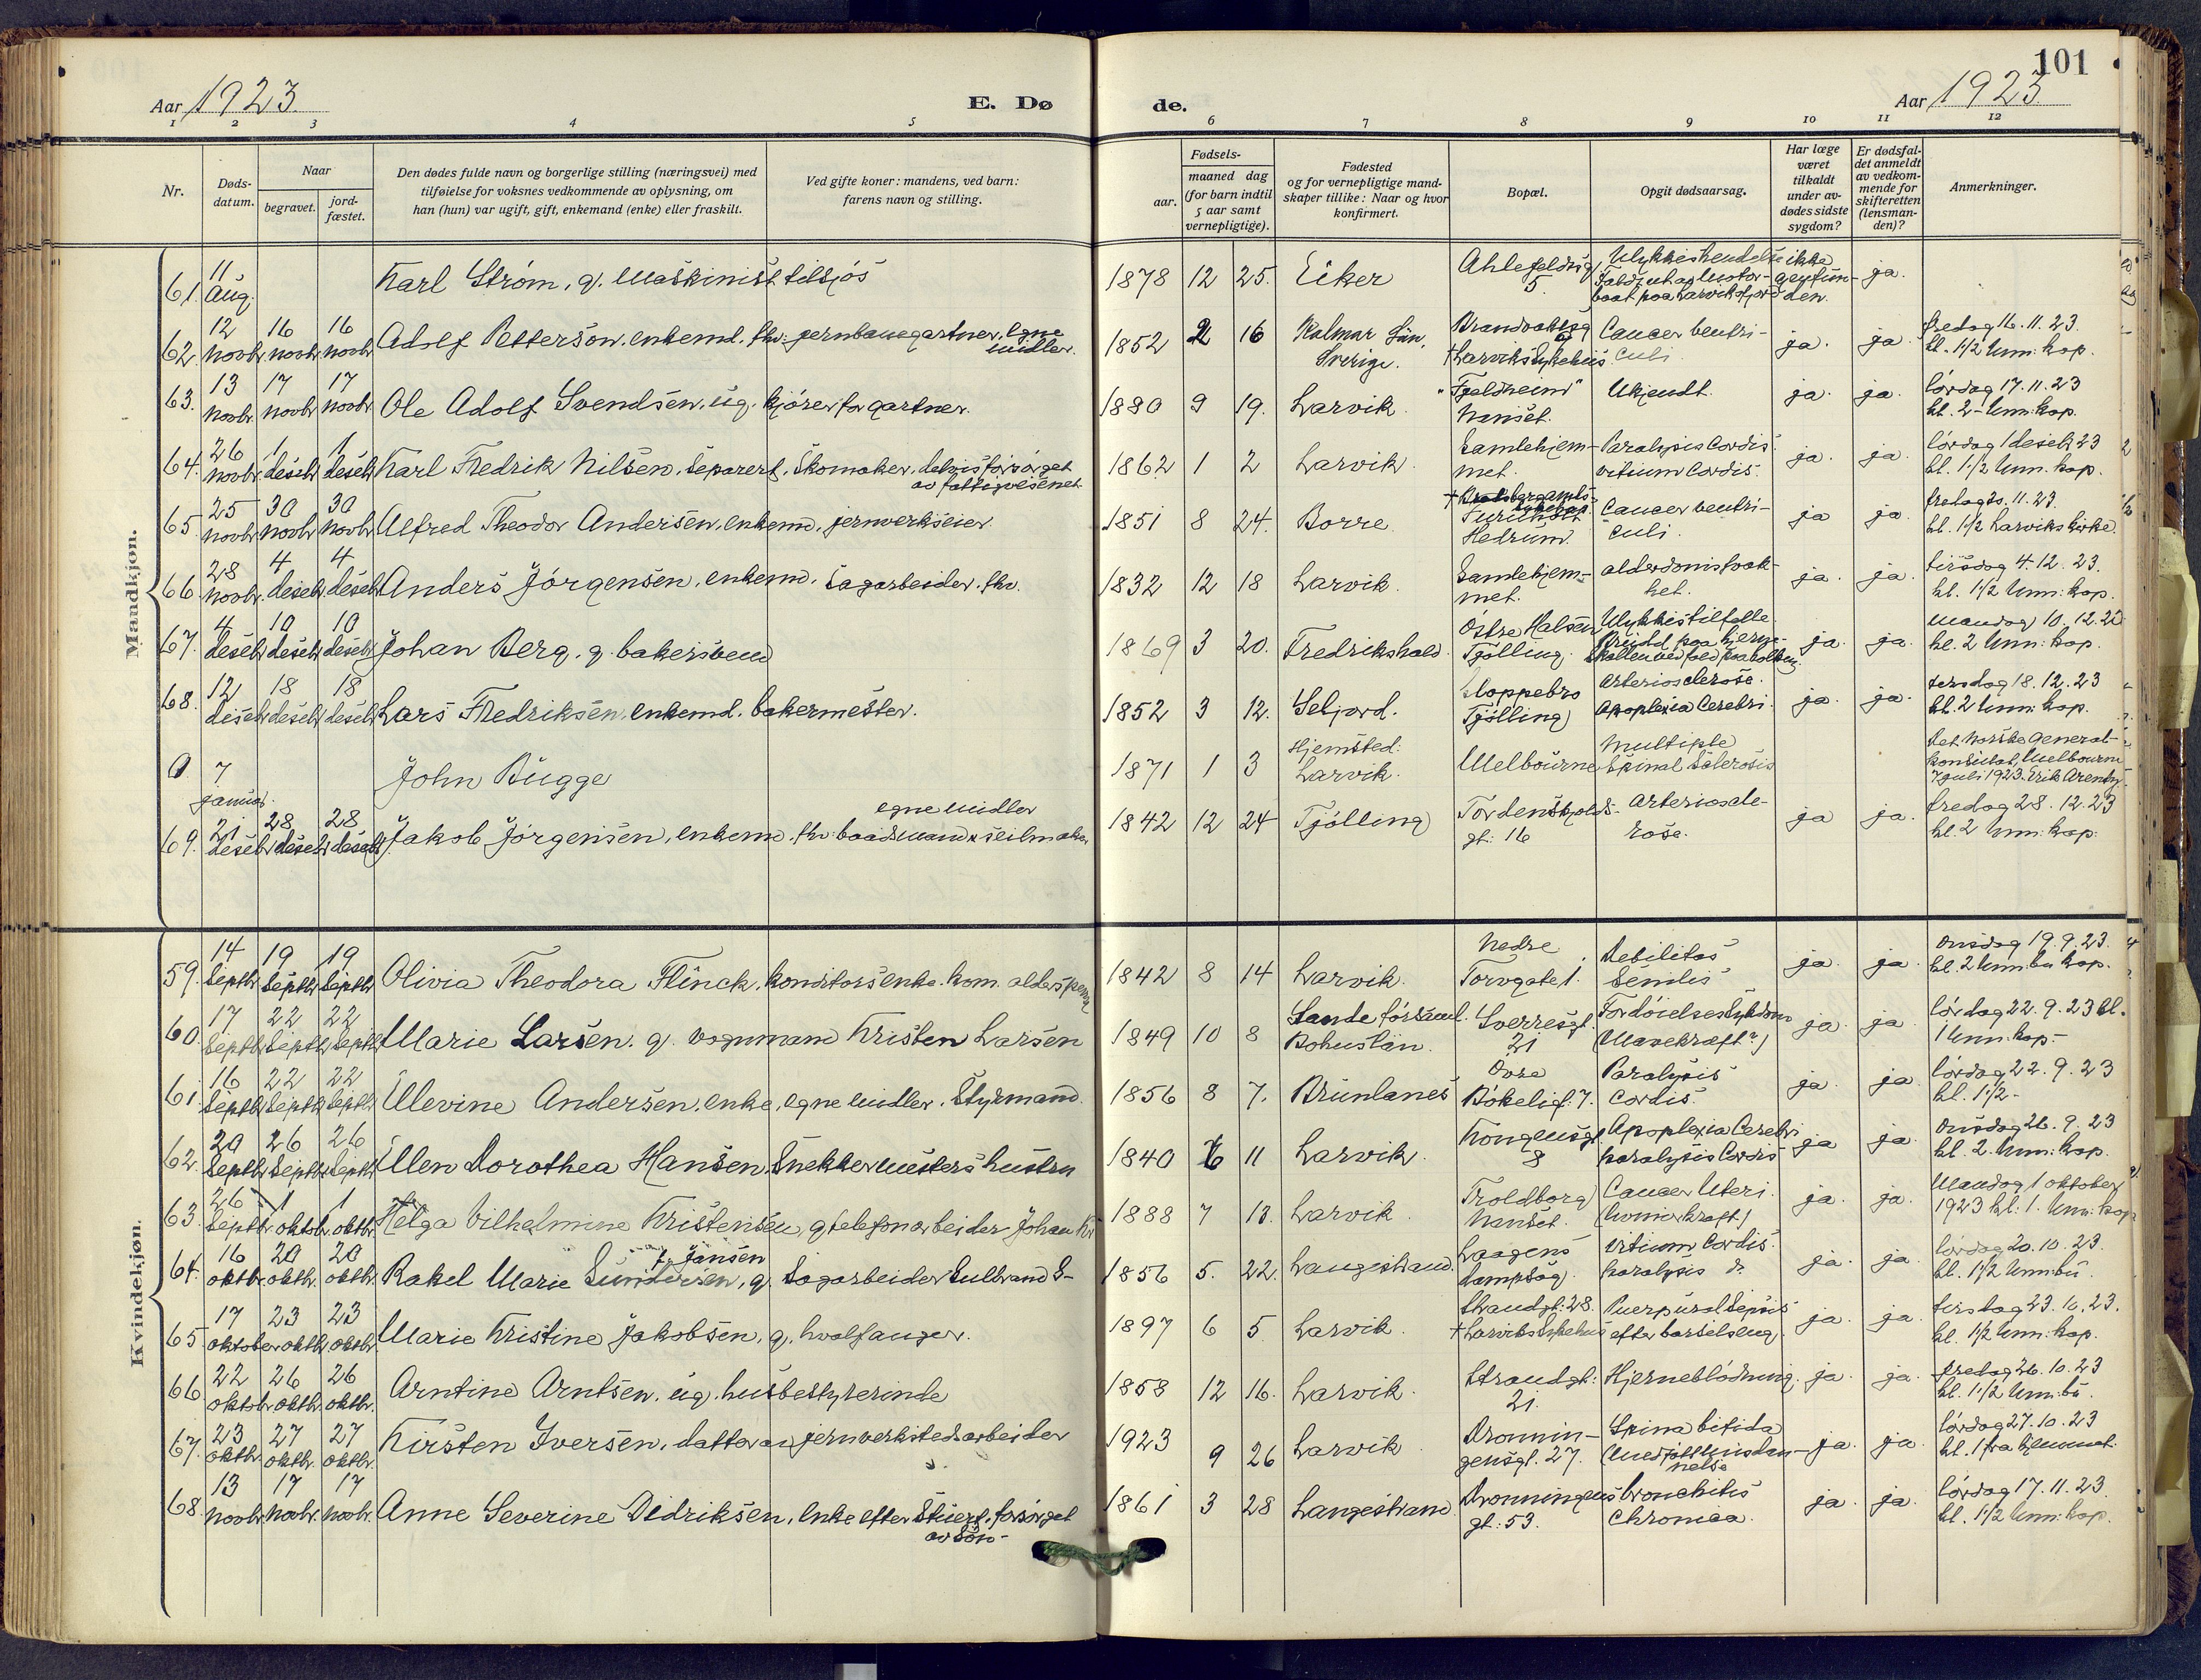 101
Aar 1923.
E. Døde.
Aar 1923
1 2 3 4 5 6 7 8 9 10 11 12
Nr.
Døds-datum.
Naar
begravet.
jord-fæstet.
Den dødes fulde navn og borgerlige stilling (næringsvei) med
tilføielse for voksnes vedkommende av oplysning, om
han (hun) var ugift, gift, enkemand (enke) eller fraskilt.
Ved gifte koner: mandens, ved barn:
farens navn og stilling.
Fødsels-
aar.
maaned dag
(for barn indtil
5 aar samt
vernepligtige).
Fødested
og for vernepligtige mand-
skaper tillike: Naar og hvor
konfirmert.
Bopæl.
Opgit dødsaarsag.
Har læge
været
tilkaldt
under av-
dødes sidste
sygdom?
Er dødsfal-
det anmeldt
av vedkom-
mende for
skifteretten
(lensman-
den)?
Anmerkninger.
Mandkjøn.
61. 11 Aug. Karl Strøm, g. Maskinist tilsjøs 1878 12 25. Eiker Ahlefeldtsg. 5. Ulykkeshendelse ja.
62. 12 novbr. 16 novbr. 16 novbr. Adolf Petterson, enkemd. fhv. jernbanegartner, egne midler. 1852 2 16 Kalmar Län, Sverige. † Larviks Sykehus Cancer ventriculi. ja. ja. fredag 16.11.23. kl. 1½ kap.
63. 13 novbr. 17 novbr. 17 novbr. Ole Adolf Svendsen, ug. kjører for gartner. 1880 9 19. Larvik. "Fjeldheim" Nanset. Ukjendt. ja. ja. lørdag 17.11.23 kl. 2 kap.
64. 26 novbr. 1 desebr 1 desebr Karl Fredrik Nilsen, separert, Skomaker, delvis forsørget av fattigvesenet 1862 1 2 Larvik. Samlehjemmet. Paralysis Cordis vitium Cordis. ja. ja. lørdag 1 desebr 23 kl. 1½ kap.
65. 25 novbr 30 novbr 30 novbr Alfred Theodor Andersen, enkemd, jernverkseier. 1851 8 24. Borre Hedrum. Cancer ventriculi. ja ja fredag 30.11.23. kl. 1½ Larviks kirke.
66. 28 novbr. 4 desebr. 4 desebr Anders Jørgensen, enkemd. Sagarbeider. fhv. 1832 12 18 Larvik. Samlehjemmet. alderdomssvakhet. ja. ja. tirsdag 4-12.23. kl. 1½ kap.
67. 4 desebr 10 desebr 10 desebr Johan Berg. g. bakersvend 1869 3 20. Fredrikshald. Østre Halsen Tjølling. Ulykkestilfelle ja. ja. Mandag 10.12.23 kl. 2 kap.
68. 12 desebr 18 desebr 18 desebr Lars Fredriksen, enkemd. bakermester. 1852 3 12. Seljord. Kloppebro Tjølling) Arteriosclerose. Apoplexia Cerebri. ja. ja. tirsdag 18.12.23 kl. 2 kap.
0. 7 januar. John Bugge 1871 1 3 Hjemsted: Larvik. Melbourne Multiple Spinal Sclerosis Det norske General-konsulat, Melbourne 7 juli 1923.
69. 21 desebr 28 desebr 28 desebr Jakob Jørgensen, enkemd. fhv: baadsmand & seilmaker egne midler 1842 12 24 Tjølling) Tordenskjolds-gt: 16 Arteriosclerose. ja ja. fredag 28.12.23 kl. 2 kap.
Kvindekjøn.
59. 14 Septbr 19 Septbr 19 Septbr Olivia Theodora Flinck, konditors enke. kom. alderspens 1842 8 14 Larvik. Nedre Torvgate 1. Debilitas Senilis ja. ja. onsdag 19.9.23. kl. 2 kap.
60. 17 Septbr 22 Septbr 22 Septbr Marie Larsen. g. vognmand Kristen Larsen 1849 10 8 Bohuslän. Sverresgt. 21 Fordøielsessykdom (Mavekræft?) ja. ja. lørdag 22.9.23 kl. 1 kap.-
61. 16 Septbr 22 Septbr 22 Septbr Ulevine Andersen, enke, egne midler. Styrmand. 1856 8 7. Brunlanes Øvre Bøkeligt. 7. Paralysis Cordis ja. ja. lørdag 22.9.23 kl. 1½-
62. 20 Septbr 26 Septbr 26 Septbr Ellen Dorothea Hansen, Snekkermesters hustru 1840 6 11 Larvik. Kongensgt. 8 Apoplexia Cerebri paralysis Cordis ja ja. onsdag 26.9.23 kl. 2. kap.
63. 26 Septbr 1 oktobr. 1 oktbr Helga Vilhelmine Kristensen, g telefonarbeider Johan Kr 1888 7 13. Larvik. Troldborg) Nanset. Cancer Uteri. ja. ja. Mandag 1 oktober 1923 kl. 1. kap.
64. 16 oktbr. 20 oktbr. 20 oktbr. Rakel Marie Sundersen, f. Jansen g. Sagarbeider Gulbrand S- 1856 5. 22. Langestrand. Laagens Dampsag). Vitium Cordis. paralysis do ja. ja. lørdag 20.10.23. kl. 1½
65. 17 oktober 23 oktbr 23 oktbr. Marie Kristine Jakobsen, g. hvalfanger. 1897 6 5. Larvik. Strandgt: 28. † Larviks Sykehus Puerpural Sepsis efter barselseng. ja. ja. tirsdag 23.10.23. kl. 1½ kap.
66. 22 oktobr 26 oktbr. 26 oktbr. Arntine Arntsen, ug. husbestyrerinde 1858 12 16. Larvik. Strandgt: 21. Hjerneblødning. ja. ja. fredag 26.10.23 kl. 1½
67. 23 oktbr. 27 oktbr. 27 oktbr. Kirsten Iversen, datter av jernverkstedsarbeider 1923 9 26 Larvik Dronningensgt. 27. Spina bifida ja. ja. lørdag 27.10.23 kl. 1 fra hjemmet.
68. 13 novbr. 17 novbr. 17 novbr. Anne Severine Didriksen, enke efter Stuert, forsørget av Søn- 1861 3 28 Langestrand Dronningens gt: 53. bronchitis Chronica. ja. ja. lørdag 17.11.23. kl. 1½ kap.